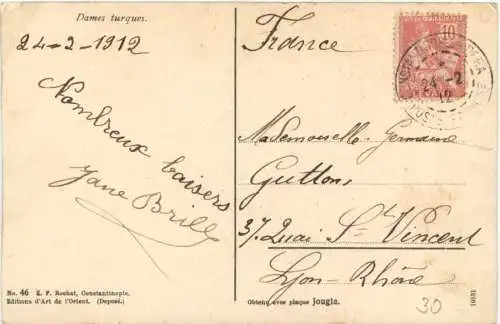 Dames turques.
24-2-1912
Nombreux baisers
Jane Brill
No. 46 E. F. Rochat, Constantinople.
Editions d'Art de l'Orient. (Deposé.)
France
10
24 -2
12
Mademoiselle Germaine
Guttons,
37 Quai St Vincent
Lyon-Rhône
Obtenu avec plaque jougla.
30